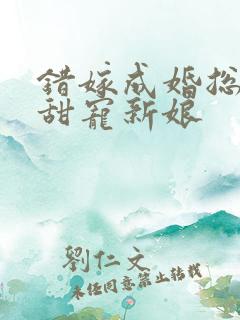 錯嫁成婚總
甜寵新娘
劉仁文
未經同意禁止轉載